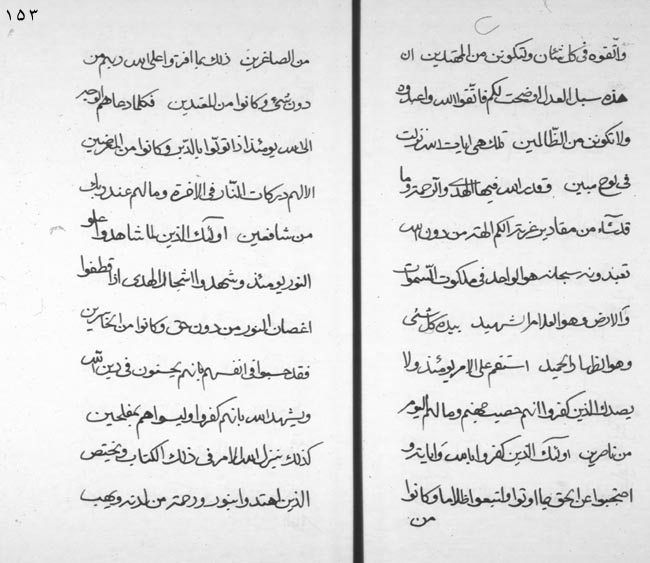 ١٥٣
واتقوه في كل شان ولتكونن من المهتدين ان
هذه سبل العدل اوضحت لكم فاتقوا الله واعبدوه
ولا تكونن من الظالمين تلك هي ايات الله نزلت
في لوح مبين وقدر الله فيها الهدى والرحمة وما
قد شاء من مقادير عزته الكم اله من دون الله
تعبدونه سبحانه هو الواحد في ملكوت السموات
والارض وهو العلام الشهيد بيده كل شيء
وهو الحميد استقم على الامر يومئذ ولا
يصدك الذين كفروا انهم حصب جهنم وما لهم اليوم
من ناصرين اولئك الذين كفروا بالله وآياته و
احتجبوا عن الحق بما اوتوا واتبعوا وكانوا
من
من الصاغرين ذلك بما افتروا على الله ربهم من
دون شيء وكانوا من المعتدين فكلما دعاهم
الى الله يومئذ اذا تولوا وكانوا من المعرضين
الا لهم دركات النار في الاخرة وما لهم عند
من شافعين اولئك الذين لما شاهدوا علو
النور يومئذ وشهدوا اشجار الهدى اذا قطفوا
اغصان النور من دون حق وكانوا من الخاسرين
فقد حسبوا في انفسهم بانهم يحسنون في دين الله
ويشهد الله بانهم كفروا وليسوا هم بمفلحين
كذلك ينزل الله الامر في ذلك الكتاب ويختص
الذين اهتدوا بنور ورحمة من لدنه ويهب